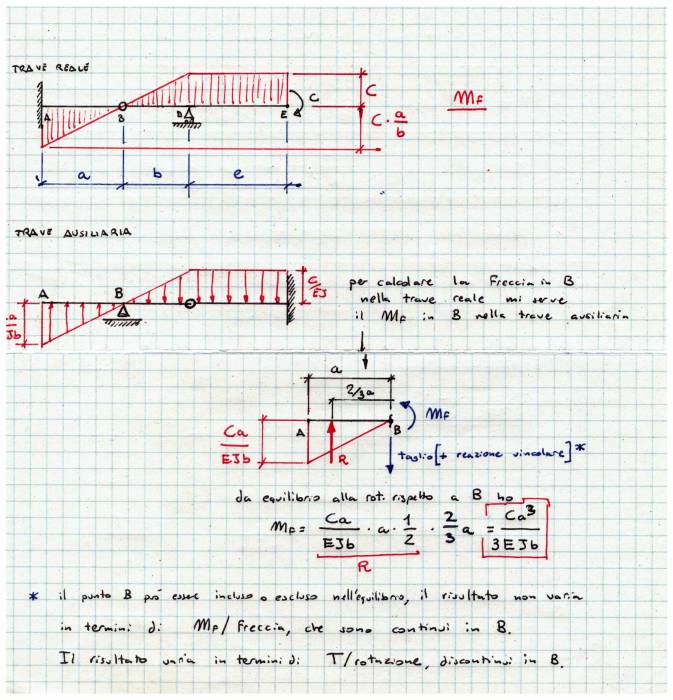 TRAVE REALE
A B D E C
C
C · a/b
MF
a b e
TRAVE AUSILIARIA
A B
C/EJ
per calcolare la Freccia in B
nella trave reale mi serve
il MF in B nella trave ausiliaria
a
2/3 a
MF
A B
Ca/EJb
R
taglio [+ reazione vincolare] *
da equilibrio alla rot. rispetto a B ho
MF = Ca/EJb · a · 1/2 · 2/3 a = Ca³/3EJb
R
* il punto B può essere incluso o escluso nell'equilibrio, il risultato non varia
in termini di MF/Freccia, che sono continui in B.
Il risultato varia in termini di T/rotazione, discontinui in B.